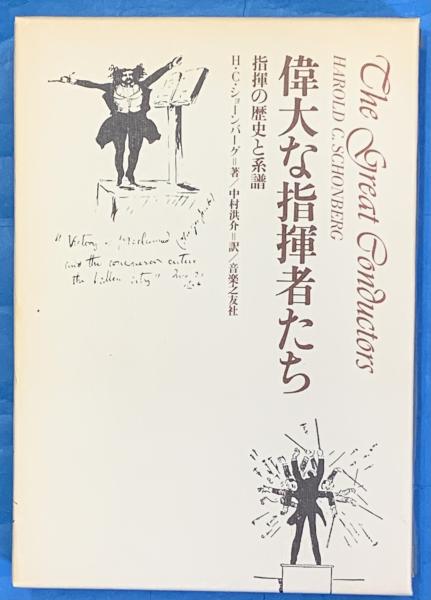 The Great Conductors
HAROLD C. SCHONBERG
偉大な指揮者たち
指揮の歴史と系譜
H・C・ショーンバーグ=著/中村洪介=訳/音楽之友社
"Victory - Proclaimed
and the conqueror enters
the fallen city"